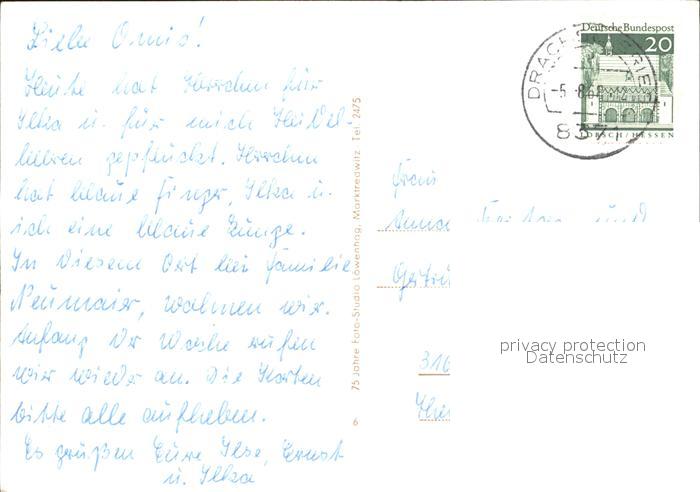 Liebe Omis!
Heute hat Herrchen für
Ilka u. für mich Heidel-
beeren gepflückt. Herrchen
hat blaue Finger, Ilka u.
ich eine blaue Zunge.
In diesem Ort bei Familie
Neumaier, wohnen wir.
Anfang der Woche rufen
wir wieder an. Die Karten
bitte alle aufheben.
Es grüßen Eure Ilse, Ernst
u. Ilka
75 Jahre Foto-Studio Löwenhag, Marktredwitz Tel. 2475
6
Deutsche Bundespost
20
LORSCH/HESSEN
8371
Frau
Anna
und
privacy protection
Datenschutz